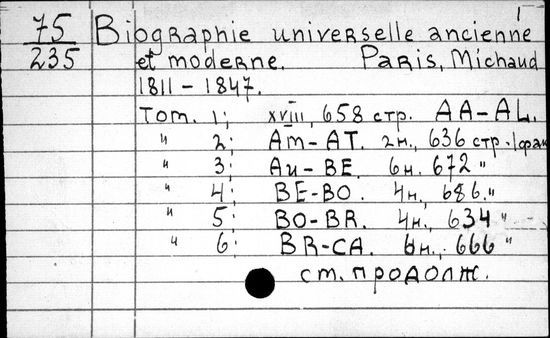 1
75 Biographie universelle ancienne
235 et moderne. Paris, Michaud
1811 - 1847.
Том. 1; xviii, 658 стр. AA-AL.
" 2; Am-AT. 2н., 636 стр. /фак
" 3; Au-BE. 6н. 672 "
" 4; BE-BO. 4н., 686. "
" 5; BO-BR. 4н., 634 "
" 6; BR-CA. 6н., 666 "
ст. продолж.